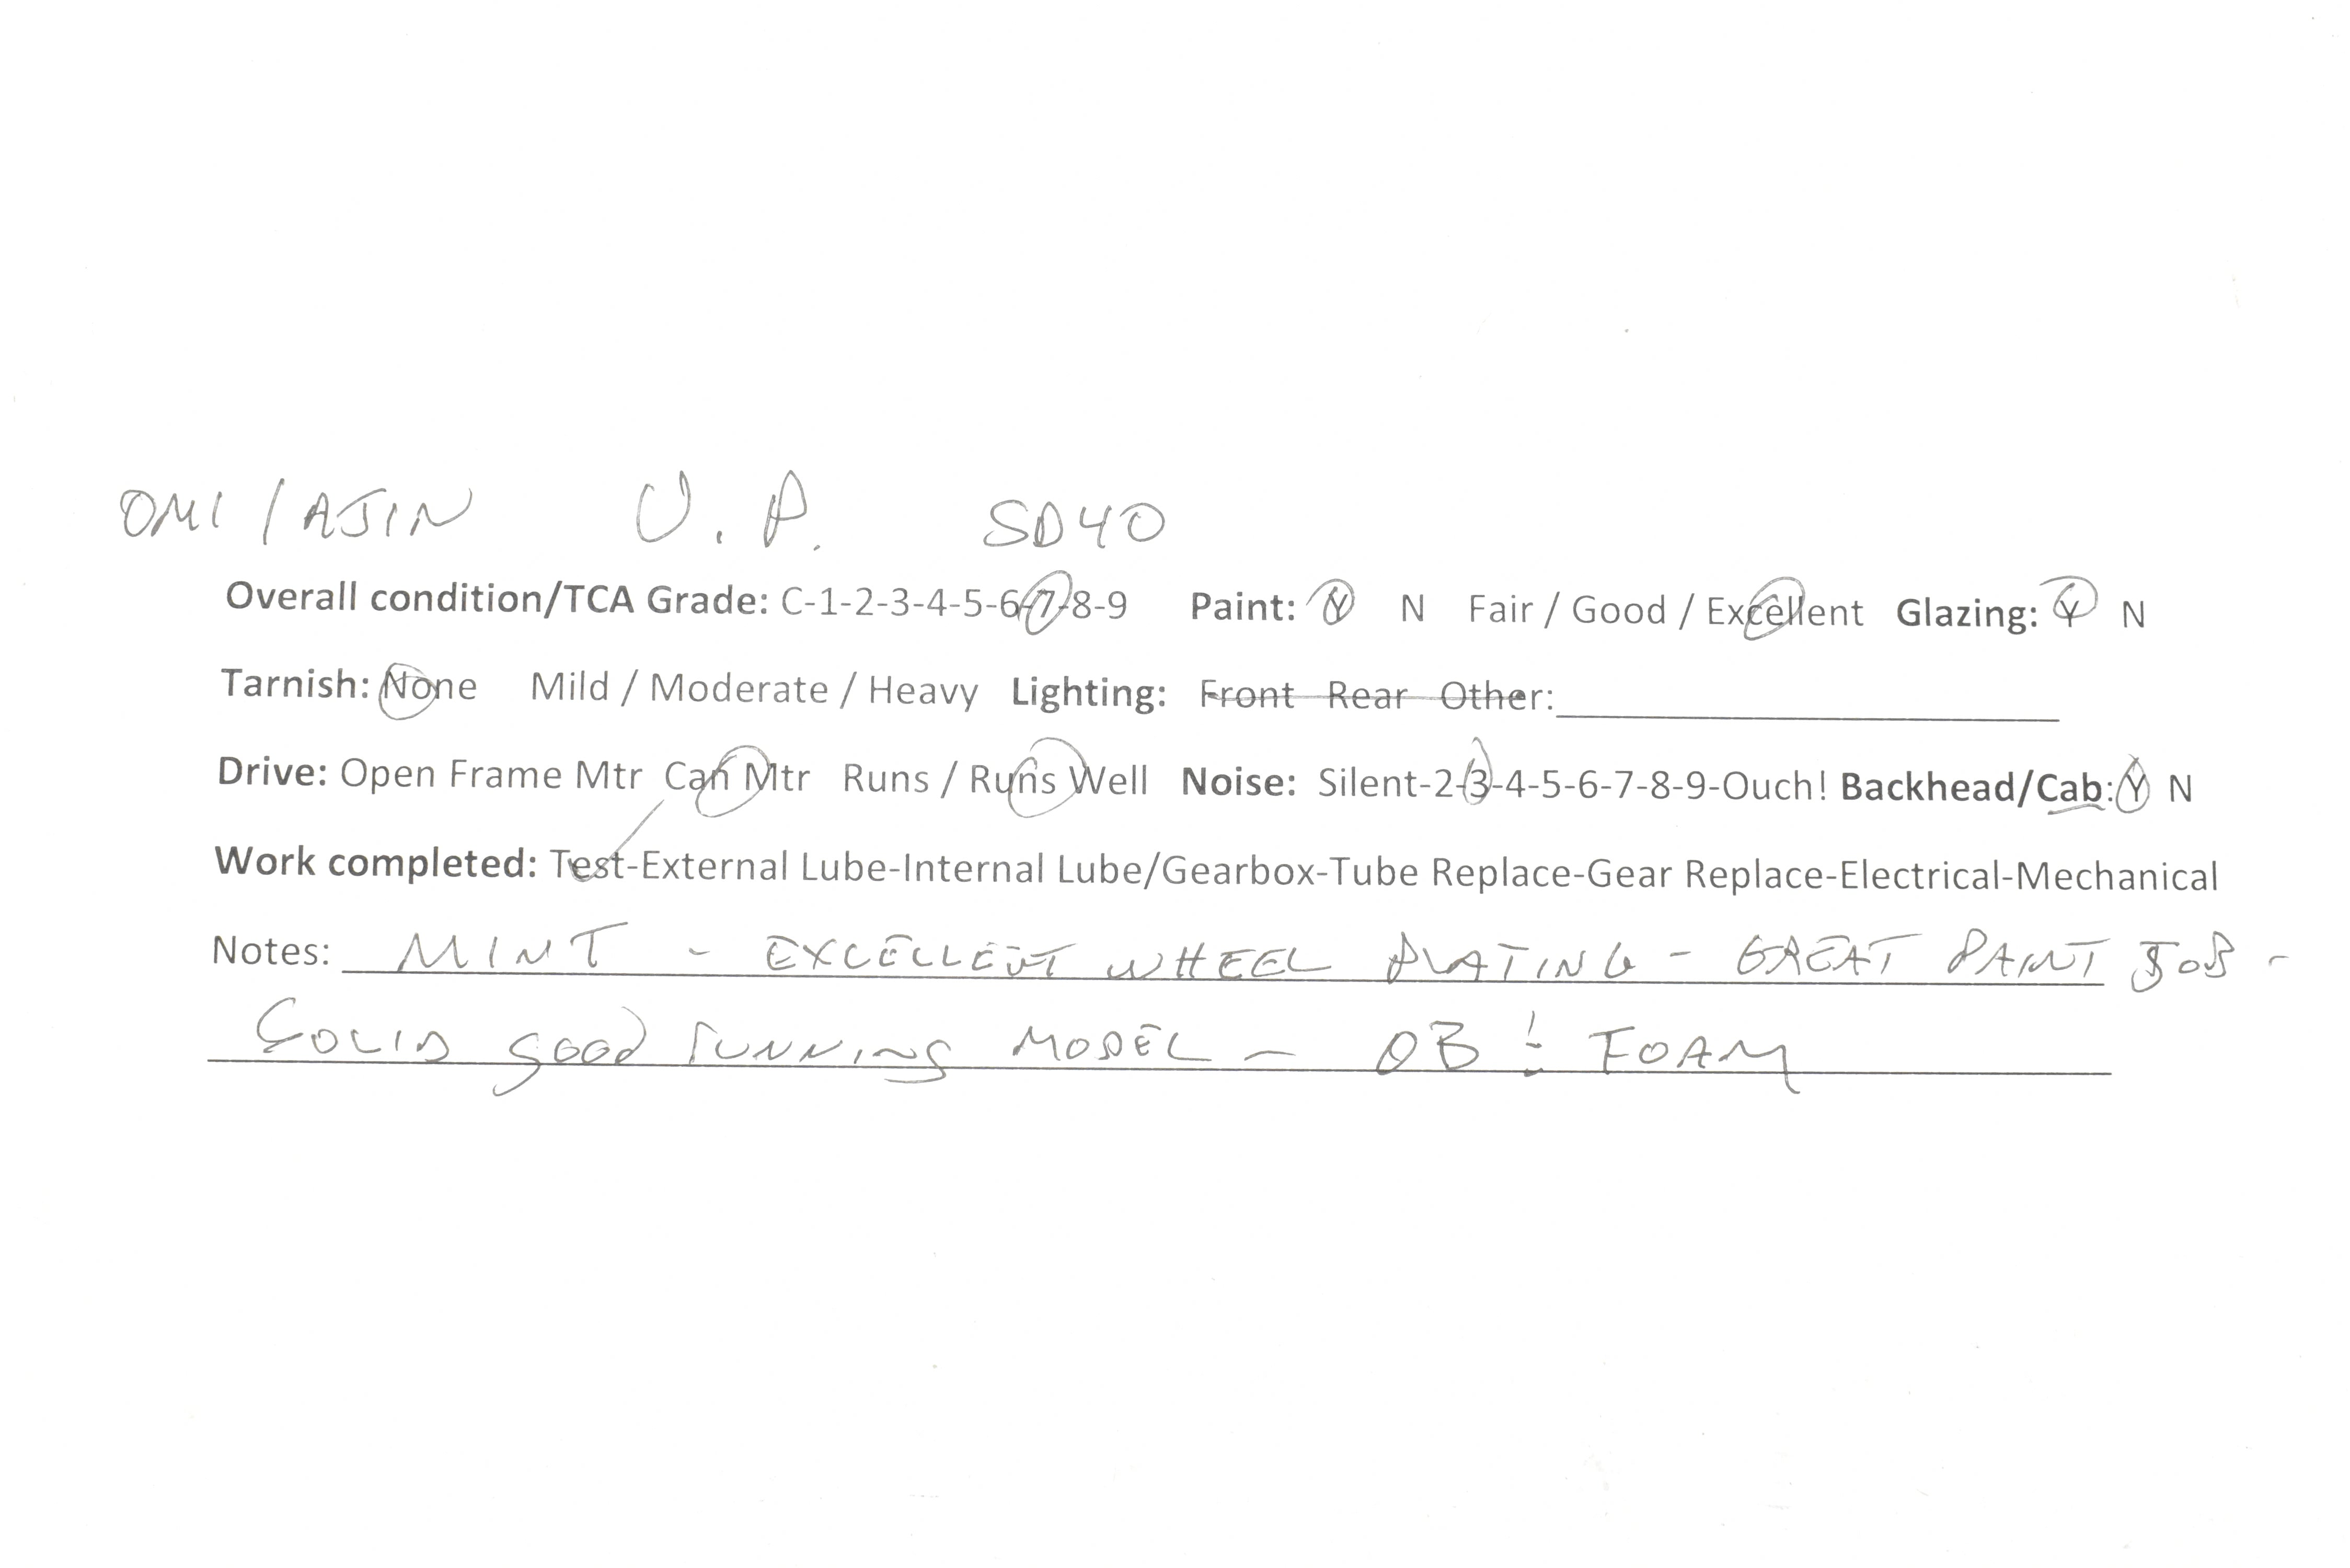 OMI / AJIN U. P. SD40
Overall condition/TCA Grade: C-1-2-3-4-5-6-7-8-9 Paint: Y N Fair / Good / Excellent Glazing: Y N
Tarnish: None Mild / Moderate / Heavy Lighting: Front Rear Other:
Drive: Open Frame Mtr Can Mtr Runs / Runs Well Noise: Silent-2-3-4-5-6-7-8-9-Ouch! Backhead/Cab: Y N
Work completed: Test-External Lube-Internal Lube/Gearbox-Tube Replace-Gear Replace-Electrical-Mechanical
Notes: MINT - EXCELLENT WHEEL PLATING - GREAT PAINT JOB -
SOLID GOOD RUNNING MODEL - OB & FOAM